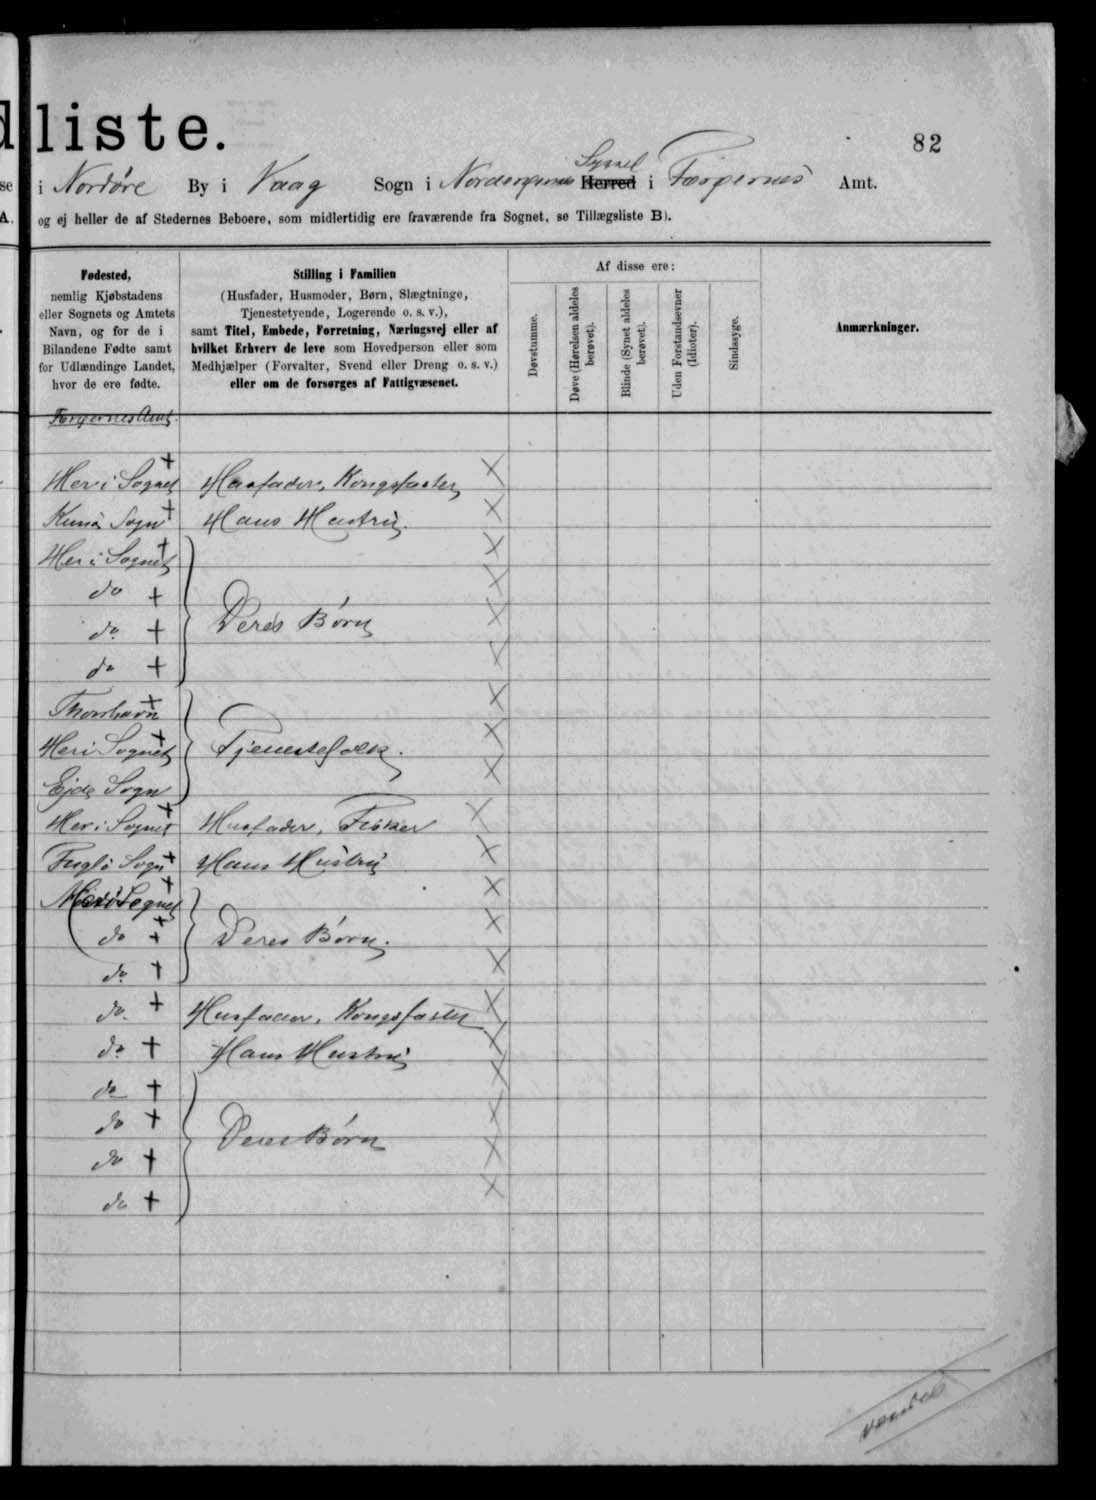 liste.
82
i Nordøre By i Vaag Sogn i Norderøernes Herred Syssel i Færøernes Amt.
og ej heller de af Stedernes Beboere, som midlertidig ere fraværende fra Sognet, se Tillægsliste B).
Fødested,
nemlig Kjøbstadens
eller Sognets og Amtets
Navn, og for de i
Bilandene Fødte samt
for Udlændinge Landet,
hvor de ere fødte.
Stilling i Familien
(Husfader, Husmoder, Børn, Slægtninge,
Tjenestetyende, Logerende o. s. v.),
samt Titel, Embede, Forretning, Næringsvej eller af
hvilket Erhverv de leve som Hovedperson eller som
Medhjælper (Forvalter, Svend eller Dreng o. s. v.)
eller om de forsørges af Fattigvæsenet.
Af disse ere:
Døvstumme.
Døve (Hørelsen aldeles
berøvet).
Blinde (Synet aldeles
berøvet).
Uden Forstandsevner
(Idioter).
Sindssyge.
Anmærkninger.
Færøernes Amt.
Her i Sognet Husfader, Kongsfæster
Kunø Sogn Hans Hustru.
Her i Sognet
do
do. Deres Børn
do
Thorshavn
Her i Sognet Tjenestefolk.
Ejde Sogn
Her i Sognet Husfader, Fisker
Fuglø Sogn Hans Hustru
Her i Sognet
do Deres Børn.
do.
do. Husfader, Kongsfæster
do. Hans Hustru
do
do Deres Børn
do
do